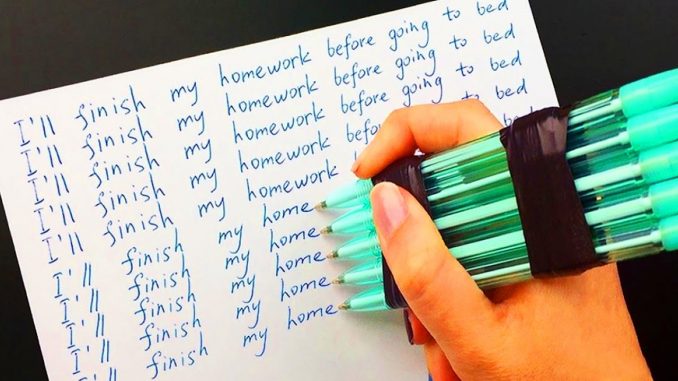 I'll finish my homework before going to bed
I'll finish my homework before going to bed
I'll finish my homework before going to bed
I'll finish my homework before to bed
I'll finish my homework bed
I'll finish my home
I'll finish my home
I'll finish my home
I'll finish my home
I'll finish my home